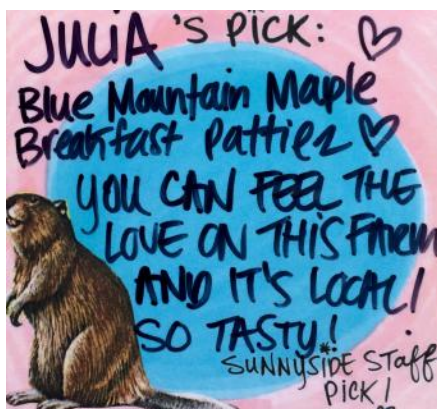 JULIA 'S PICK: ♡
Blue Mountain Maple
Breakfast Patties ♡
YOU CAN FEEL THE
LOVE ON THIS FARM
AND IT'S LOCAL!
SO TASTY!
SUNNYSIDE Staff
PICK!